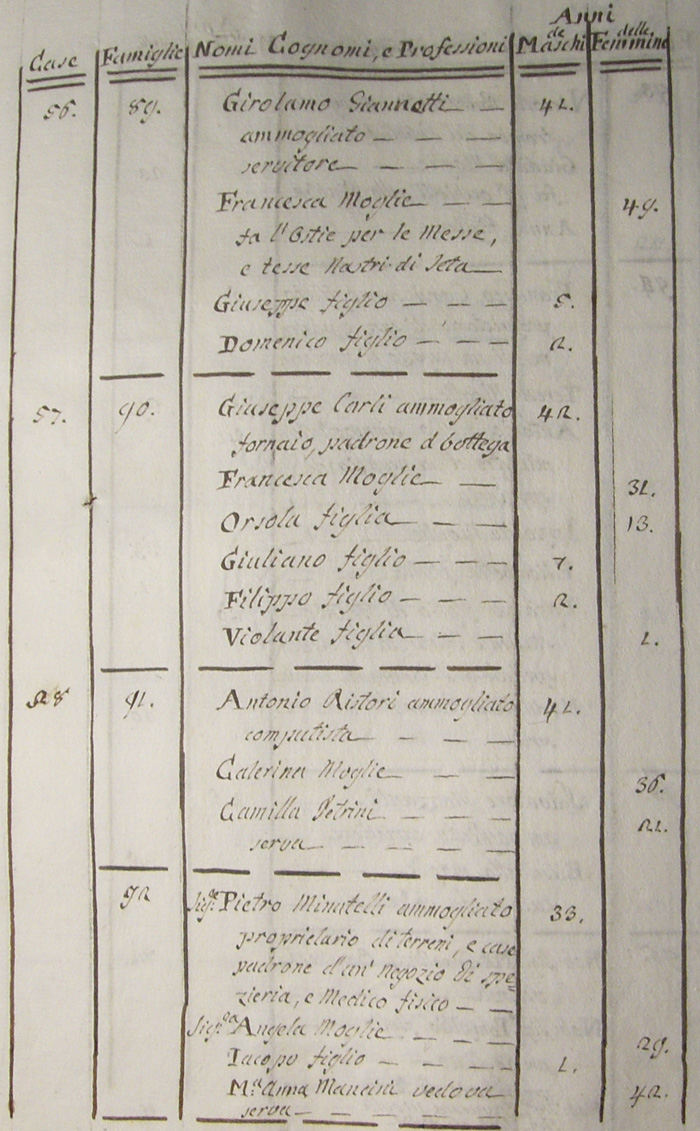 Anni
Case Famiglie Nomi Cognomi, e Professioni de Maschi delle Femmine
56. 89. Girolamo Giannetti 41.
ammogliato
servitore
Francesca Moglie 49.
fa l'Ostie per le Messe,
e tesse Nastri di Seta
Giuseppe figlio 5.
Domenico figlio 2.
57. 90. Giuseppe Carli ammogliato 42.
fornaio, padrone d bottega
Francesca Moglie 31.
Orsola figlia 13.
Giuliano figlio 7.
Filippo figlio 2.
Violante figlia 1.
58 91. Antonio Ristori ammogliato 41.
computista
Caterina Moglie 36.
Camilla Petrini 21.
serva
92 Sig.re Pietro Minutelli ammogliato 33.
proprietario di terreni, e case
padrone d'un' negozio di spe=
zieria, e Medico fisico
Sig.ra Angela Moglie 29.
Iacopo figlio 1.
M.a Anna Mancini vedova 42.
serva